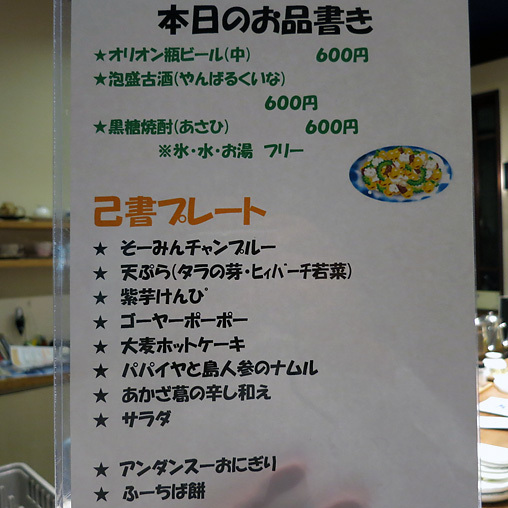 本日のお品書き
★オリオン瓶ビール(中) 600円
★泡盛古酒(やんばるくいな)
600円
★黒糖焼酎(あさひ) 600円
※氷・水・お湯 フリー
己書プレート
★ そーみんチャンプルー
★ 天ぷら(タラの芽・ヒィバーチ若菜)
★ 紫芋けんぴ
★ ゴーヤーポーポー
★ 大麦ホットケーキ
★ パパイヤと島人参のナムル
★ あかざ葛の辛し和え
★ サラダ
★ アンダンスーおにぎり
★ ふーちば餅